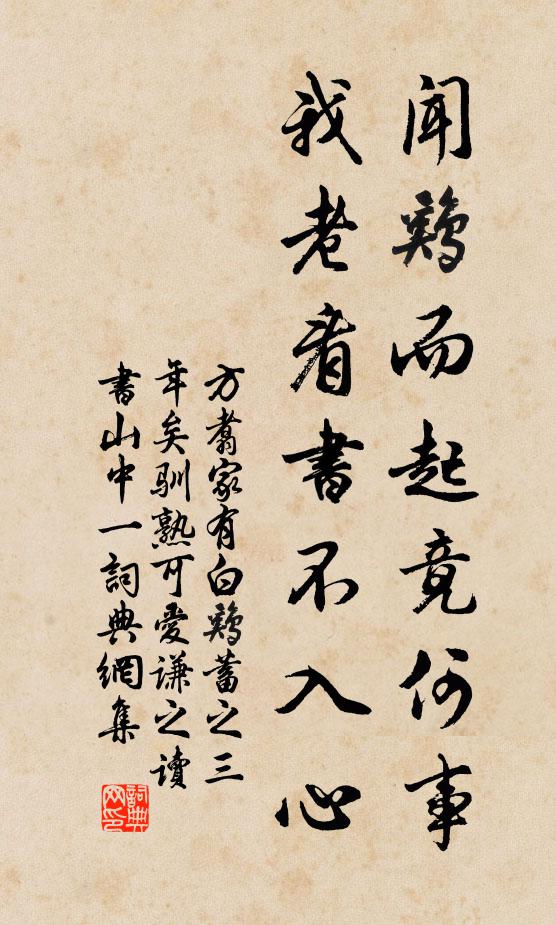 聞鷄而起竟何事
我老看書不入心
方翥家有白鷄蓄之三
年矣馴熟可愛謙之讀
書山中一詞典網集
詞典
网印